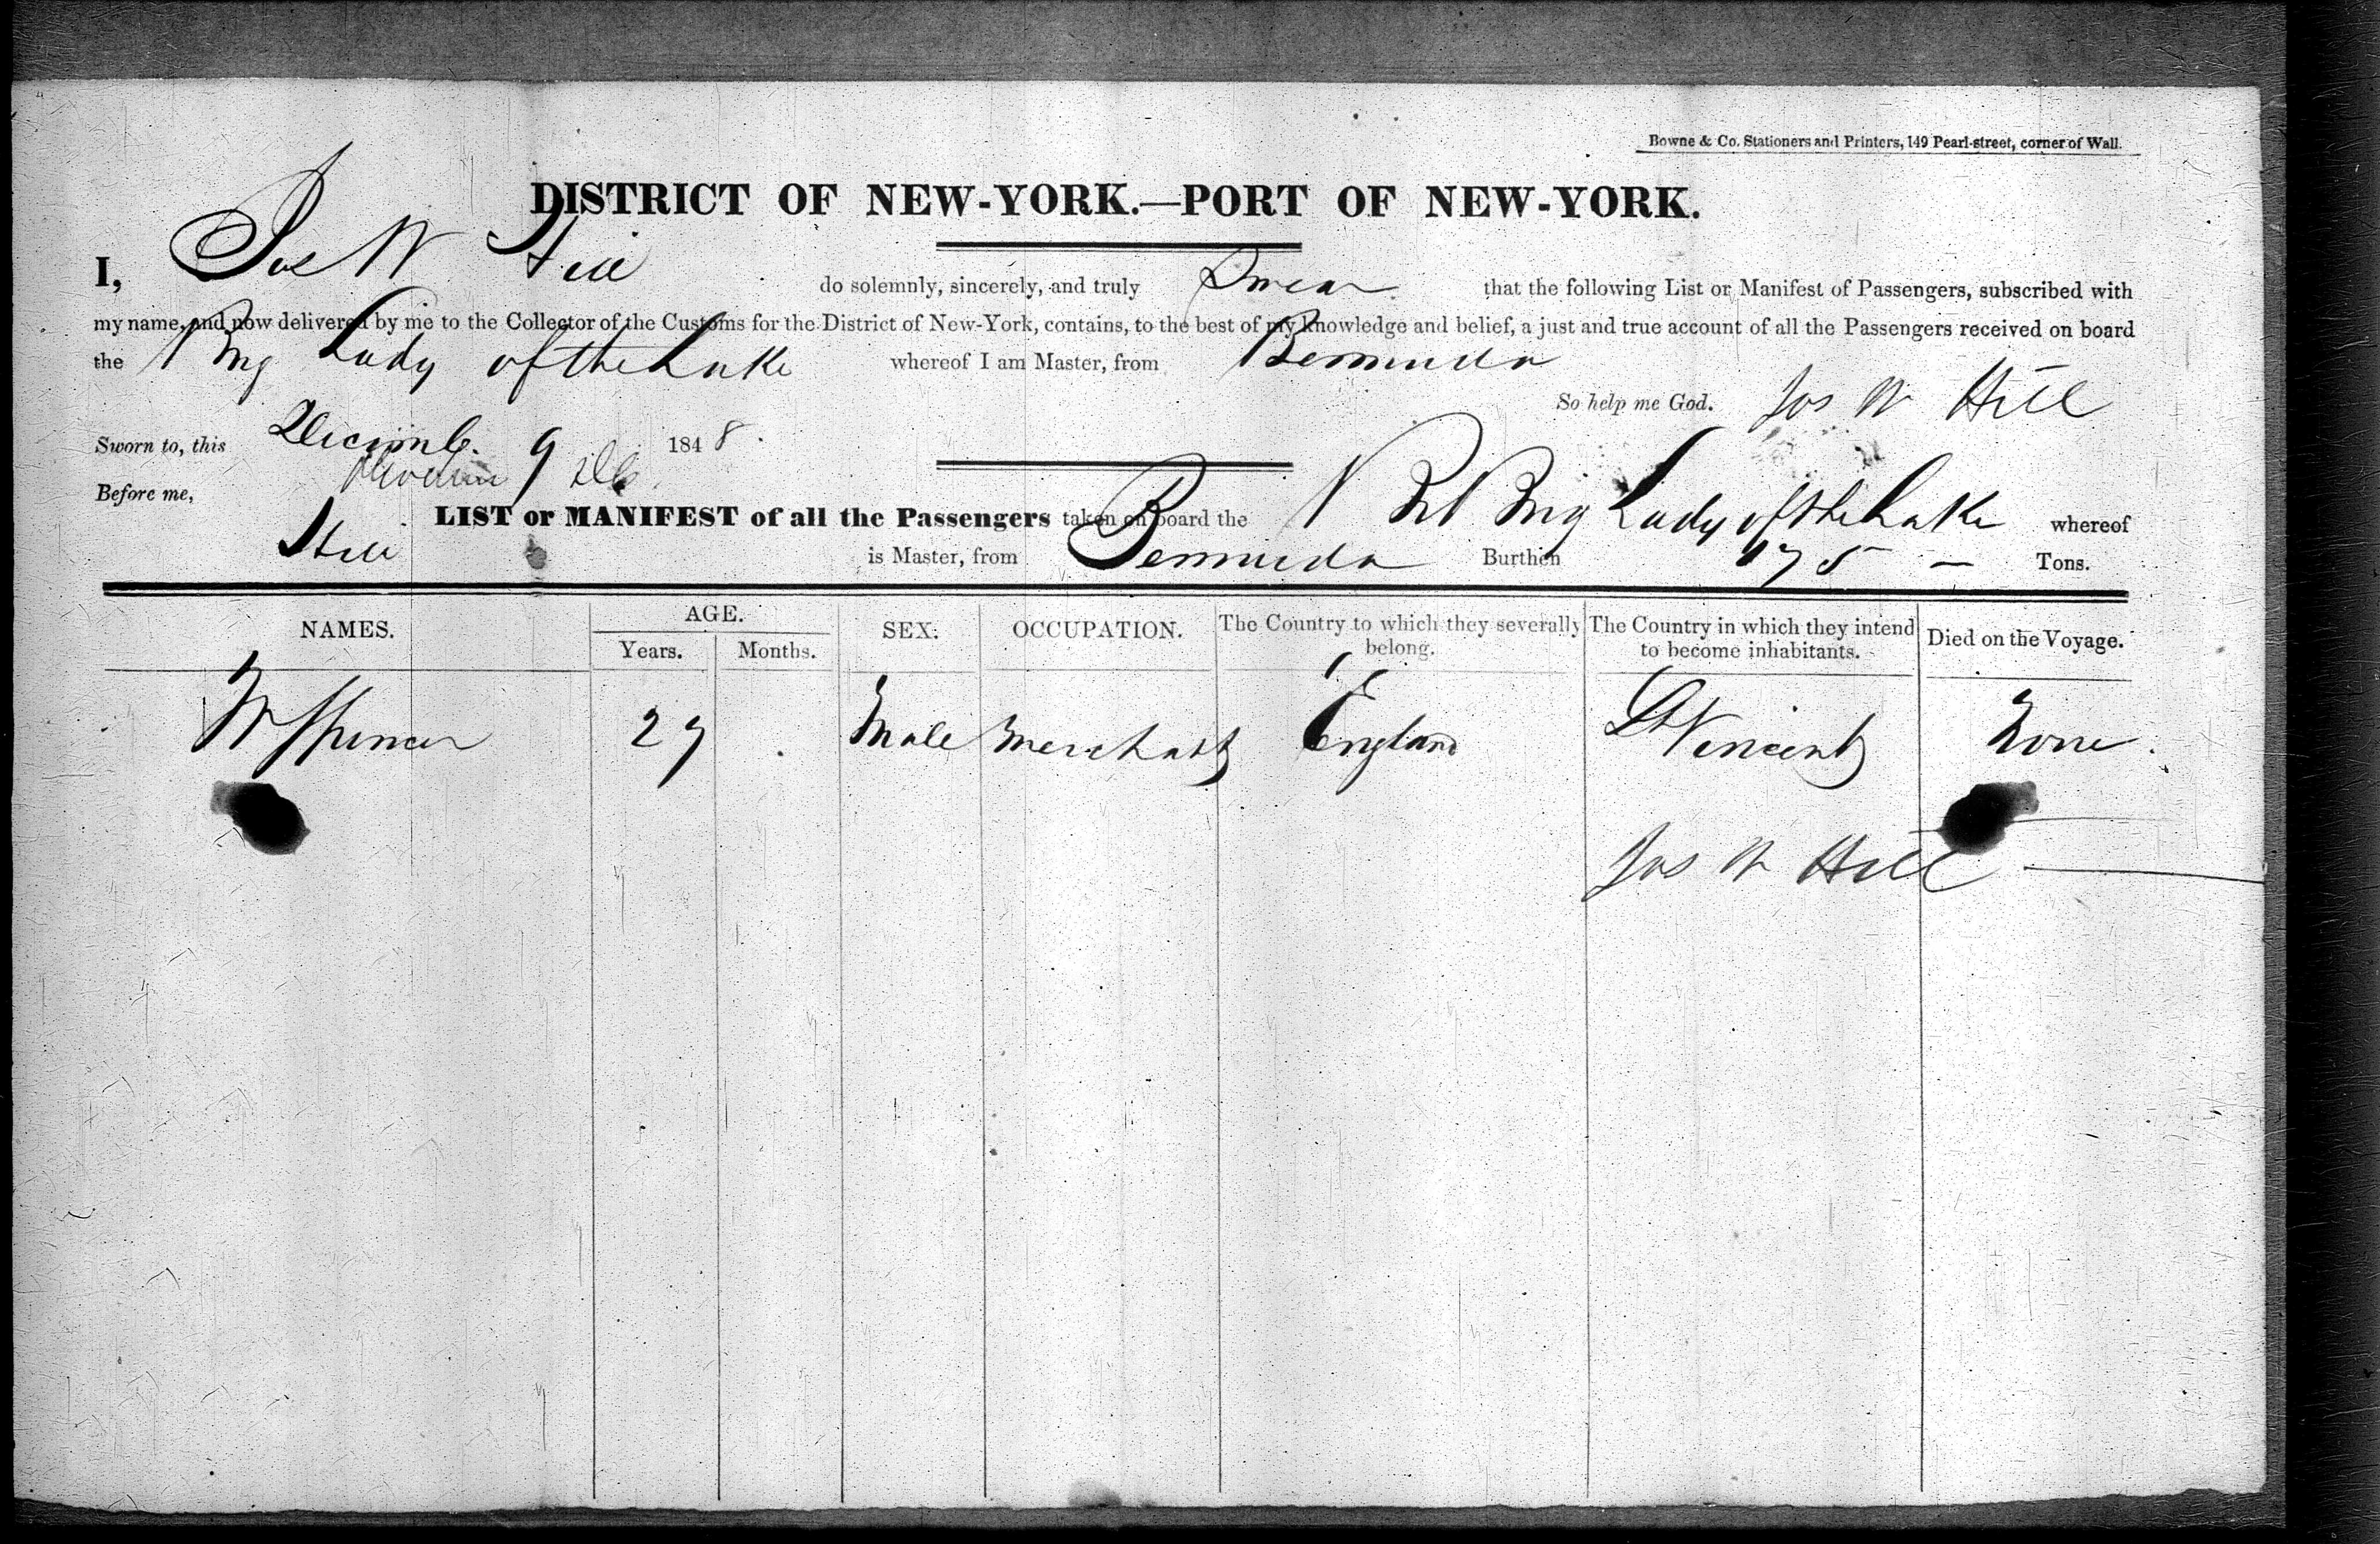 Bowne & Co. Stationers and Printers, 149 Pearl-street, corner of Wall.
DISTRICT OF NEW-YORK.—PORT OF NEW-YORK.
I, Jos W Hill do solemnly, sincerely, and truly Swear that the following List or Manifest of Passengers, subscribed with
my name, and now delivered by me to the Collector of the Customs for the District of New-York, contains, to the best of my knowledge and belief, a just and true account of all the Passengers received on board
the Brig Lady of the Lake whereof I am Master, from Bermuda
So help me God. Jos W Hill
Sworn to, this Decemb. 9 1848.
Before me,
LIST or MANIFEST of all the Passengers taken on board the Brig Lady of the Lake whereof
Hill is Master, from Bermuda Burthen 175 — Tons.
NAMES. AGE. SEX. OCCUPATION. The Country to which they severally belong. The Country in which they intend to become inhabitants. Died on the Voyage.
Years. Months.
W Spencer 27 Male Merchant England St Vincent None.
Jos W Hill